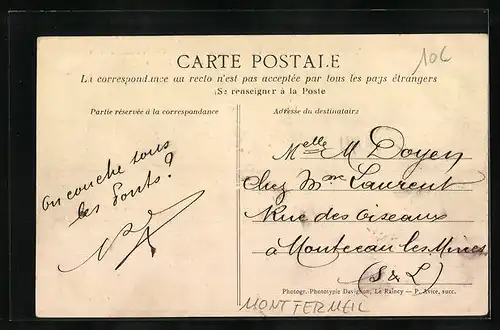 CARTE POSTALE
106
La correspondance au recto n'est pas acceptée par tous les pays étrangers
(Se renseigner à la Poste
Partie réservée à la correspondance
Adresse du destinataire
on couche sous
les Ponts?
Melle M Doyen
Chez Mme Laurent
Rue des Oiseaux
à Montceau les Mines
(S & L)
Photogr.-Phototypie Davignon, Le Raincy — P. Avice, succ.
MONTFERMEIL